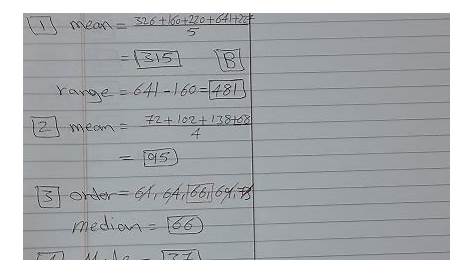 1 mean = 326+160+220+641+
5
= 315 B
range = 641-160=481
2 mean = 72+102+138+68
4
= 95
3 order = 61, 64, 66,
median = 66